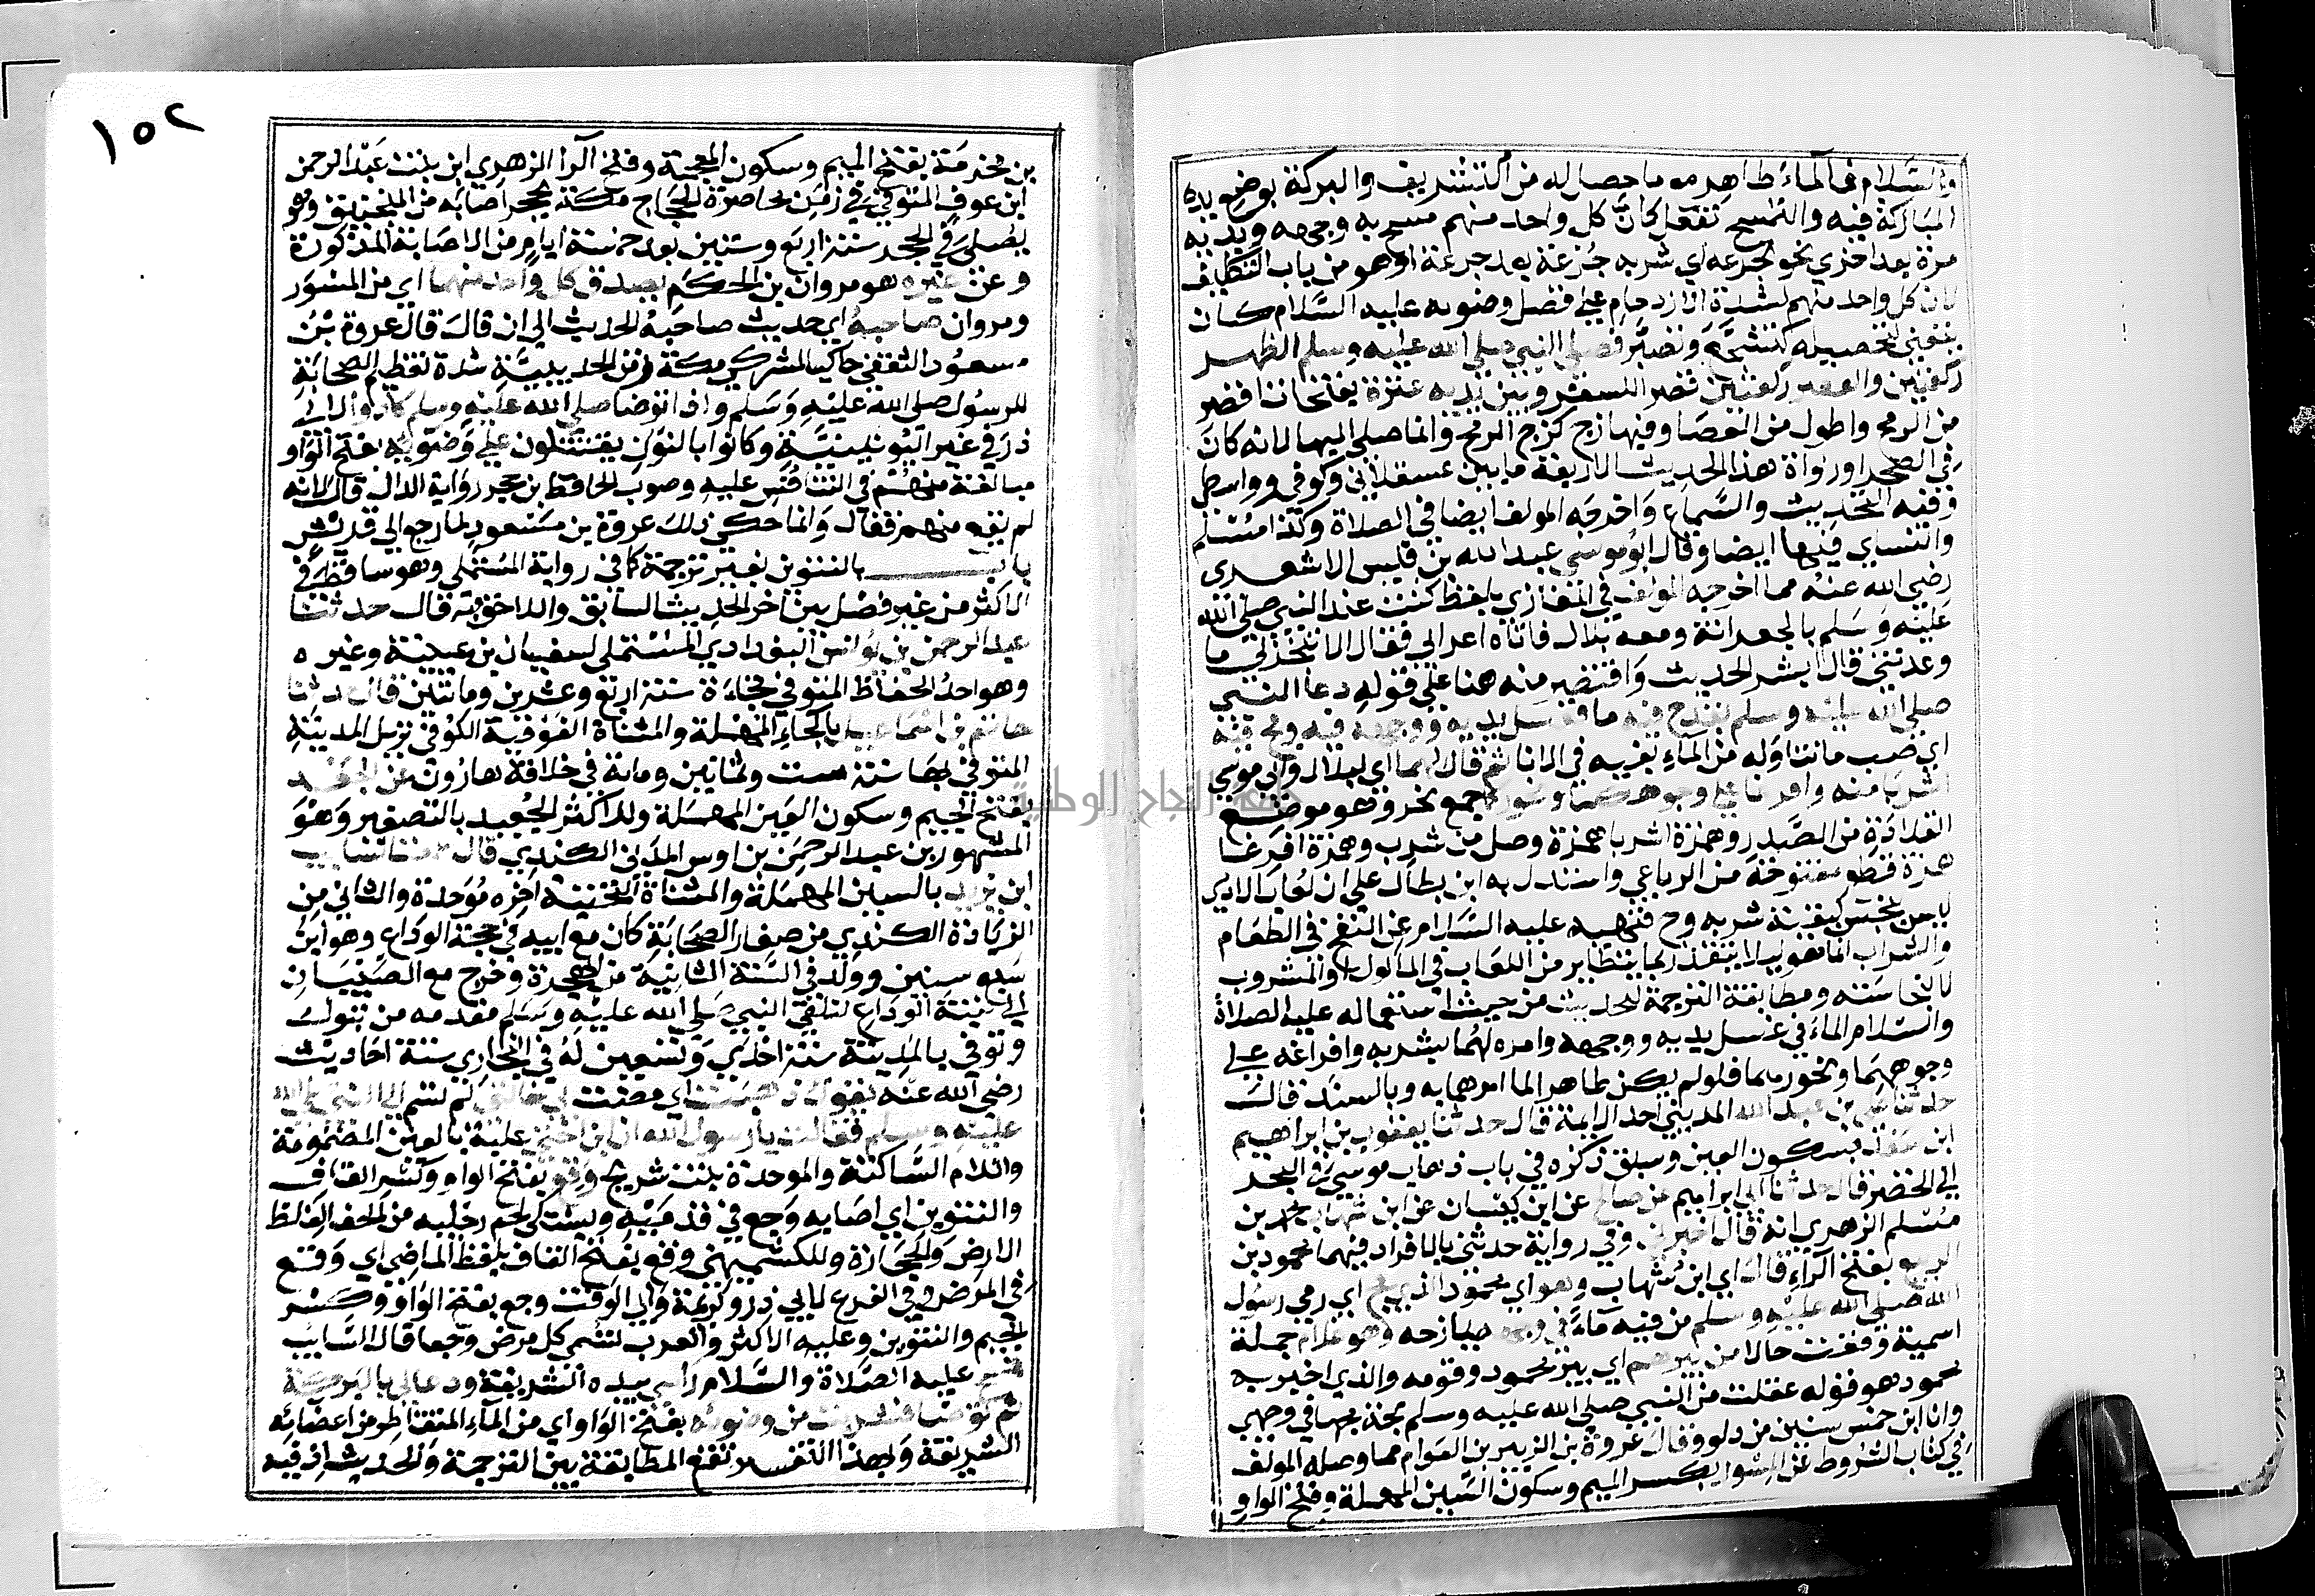 والسلام فالماء طاهر مع ما حصل له من التشريف والبركة بوضع يده
المباركة فيه والتمسح تفعل كان كل واحد منهم مسح به وجهه ويديه
مرة بعد اخرى نحو تجرعه اي شربه جرعة بعد جرعة او هو من باب التكلف
لان كل واحد منهم لشدة الازدحام على فضل وضوئه عليه السلام كان
يتعنى لتحصيله كتشجع وتصبر فصلى النبي صلى الله عليه وسلم الظهر
ركعتين والعصر ركعتين قصرا للسفر وبين يديه عنزة بفتحات اقصر
من الرمح واطول من العصا وفيها زج كزج الرمح وانما صلى اليها لانه كان
في الصحرا ورواة هذا الحديث الاربعة ما بين عسقلاني وكوفي وواسطي
وفيه التحديث والسماع واخرجه المولف ايضا في الصلاة وكذا مسلم
والنساي فيها ايضا وقال ابو موسى عبد الله بن قيس الاشعري
رضي الله عنه مما اخرجه المولف في المغازي بلفظ كنت عند النبي صلى الله
عليه وسلم بالجعرانة ومعه بلال فاتاه اعرابي فقال الا تنجز لي ما
وعدتني قال ابشر الحديث واقتصر منه هنا على قوله دعا النبي
صلى الله عليه وسلم بقدح فيه ما فغسل يديه ووجهه فيه ومج فيه
اي صب ما تناوله من الماء بفيه في الانا ثم قال لهما اي لبلال وابي موسى
اشربا منه وافرغا على وجوهكما ونحوركما جمع نحر وهو موضع
القلادة من الصدر وهمزة اشربا همزة وصل من شرب وهمزة افرغا
همزة قطع مفتوحة من الرباعي واستدل به ابن بطال على ان لعاب الادمي
ليس بنجس كبقية شربه وح فنهيه عليه السلام عن النفخ في الطعام
والشراب انما هو ليلا يتقذر بما يتطاير من اللعاب في الماكول والمشروب
لا لنجاسته ومطابقة الترجمة للحديث من حيث استعماله عليه الصلاة
والسلام الماء في غسل يديه ووجهه وامره لهما بشربه وافراغه على
وجوههما ونحورهما فلو لم يكن طاهرا لما امرهما به وبالسند قال
حدثنا علي بن عبد الله المديني احد الايمة قال حدثنا يعقوب بن ابراهيم
ابن سعد بسكون العين وسبق ذكره في باب ذهاب موسى في البحر
الى الخضر قال حدثنا ابي ابراهيم عن صالح عن ابن كيسان عن ابن شهاب محمد بن
مسلم الزهري انه قال اخبرني وفي رواية حدثني بالافراد فيهما محمود بن
الربيع بفتح الراء قال اي ابن شهاب وهو اي محمود الذي مج اي رمى رسول
الله صلى الله عليه وسلم من فيه ماء في وجهه يمازحه وهو غلام جملة
اسمية وقعت حالا من بيرهم اي بير محمود وقومه والذي اخبر به
محمود هو قوله عقلت من النبي صلى الله عليه وسلم مجة مجها في وجهي
وانا ابن خمس سنين من دلو وقال عروة بن الزبير بن العوام مما وصله المولف
في كتاب الشروط عن المسور بكسر الميم وسكون السين المهملة وفتح الواو
١٥٢
بن مخرمة بفتح الميم وسكون المعجمة وفتح الرا الزهري ابن بنت عبد الرحمن
ابن عوف المتوفي في زمن محاصرة الحجاج مكة بحجر اصابه من المنجنيق وهو
يصلي في الحجر سنة اربع وستين بعد خمسة ايام من الاصابة المذكورة
وعن غيره هو مروان بن الحكم يصدق كل واحد منهما اي من المسور
ومروان صاحبه اي حديث صاحبه الحديث الى ان قال قال عروة بن
مسعود الثقفي حاكيا لمشركي مكة زمن الحديبية شدة تعظيم الصحابة
للرسول صلى الله عليه وسلم واذا توضا صلى الله عليه وسلم كادوا لابي
ذر في غير اليونينية وكانوا بالنون يقتتلون على وضويه بفتح الواو
مبالغة منهم في التنافس عليه وصوب الحافظ بن حجر رواية الدال قال لانه
لم يقع منهم قتال وانما حكى ذلك عروة بن مسعود لما رجع الى قريش
باب بالتنوين بغير ترجمة كما في رواية المستملي وهو ساقط في
الاكثر من غير فصل بين اخر الحديث السابق واللاحق به قال حدثنا
عبد الرحمن بن يونس البغدادي المستملي لسفيان بن عيينة وغيره
وهو احد الحفاظ المتوفي فجاءة سنة اربع وعشرين ومائتين قال حدثنا
حاتم بن اسماعيل بالحاء المهملة والمثناة الفوقية الكوفي نزيل المدينة
المتوفي بها سنة ست وثمانين ومائة في خلافة هارون عن الجعد
بفتح الجيم وسكون العين المهملة وللاكثر الجعيد بالتصغير وهو
المشهور بن عبد الرحمن بن اوس المدني الكندي قال سمعت السايب
ابن يزيد بالسين المهملة والمثناة التحتية اخره موحدة والثاني من
الزيادة الكندي من صغار الصحابة كان مع ابيه في حجة الوداع وهو ابن
سبع سنين وولد في السنة الثانية من الهجرة وخرج مع الصبيان
الى ثنية الوداع لتلقي النبي صلى الله عليه وسلم مقدمه من تبوك
وتوفي بالمدينة سنة احدى وتسعين له في البخاري ستة احاديث
رضي الله عنه يقول ذهبت اي مضت بي خالتي لم تسم الى النبي صلى الله
عليه وسلم فقالت يا رسول الله ان ابن اختي علبة بالعين المضمومة
واللام الساكنة والموحدة بنت شريح وقع بفتح الواو وكسر القاف
والتنوين اي اصابه وجع في قدميه ويشتكي لحم رجليه من الحفا لغلظ
الارض والحجارة وللكشميهني وقع بفتح القاف بلفظ الماضي اي وقع
في المرض وفي الفرع لابي ذر وكريمة وابي الوقت وجع بفتح الواو وكسر
الجيم والتنوين وعليه الاكثر والعرب تسمي كل مرض وجعا قال السايب
فمسح عليه الصلاة والسلام راسي بيده الشريفة ودعا لي بالبركة
ثم توضا فشربت من وضوئه بفتح الواو اي من الماء المتقاطر من اعضائه
الشريفة وبهذا التفسير تقع المطابقة بين الترجمة والحديث اذ فيه
جامعة النجاح الوطنية